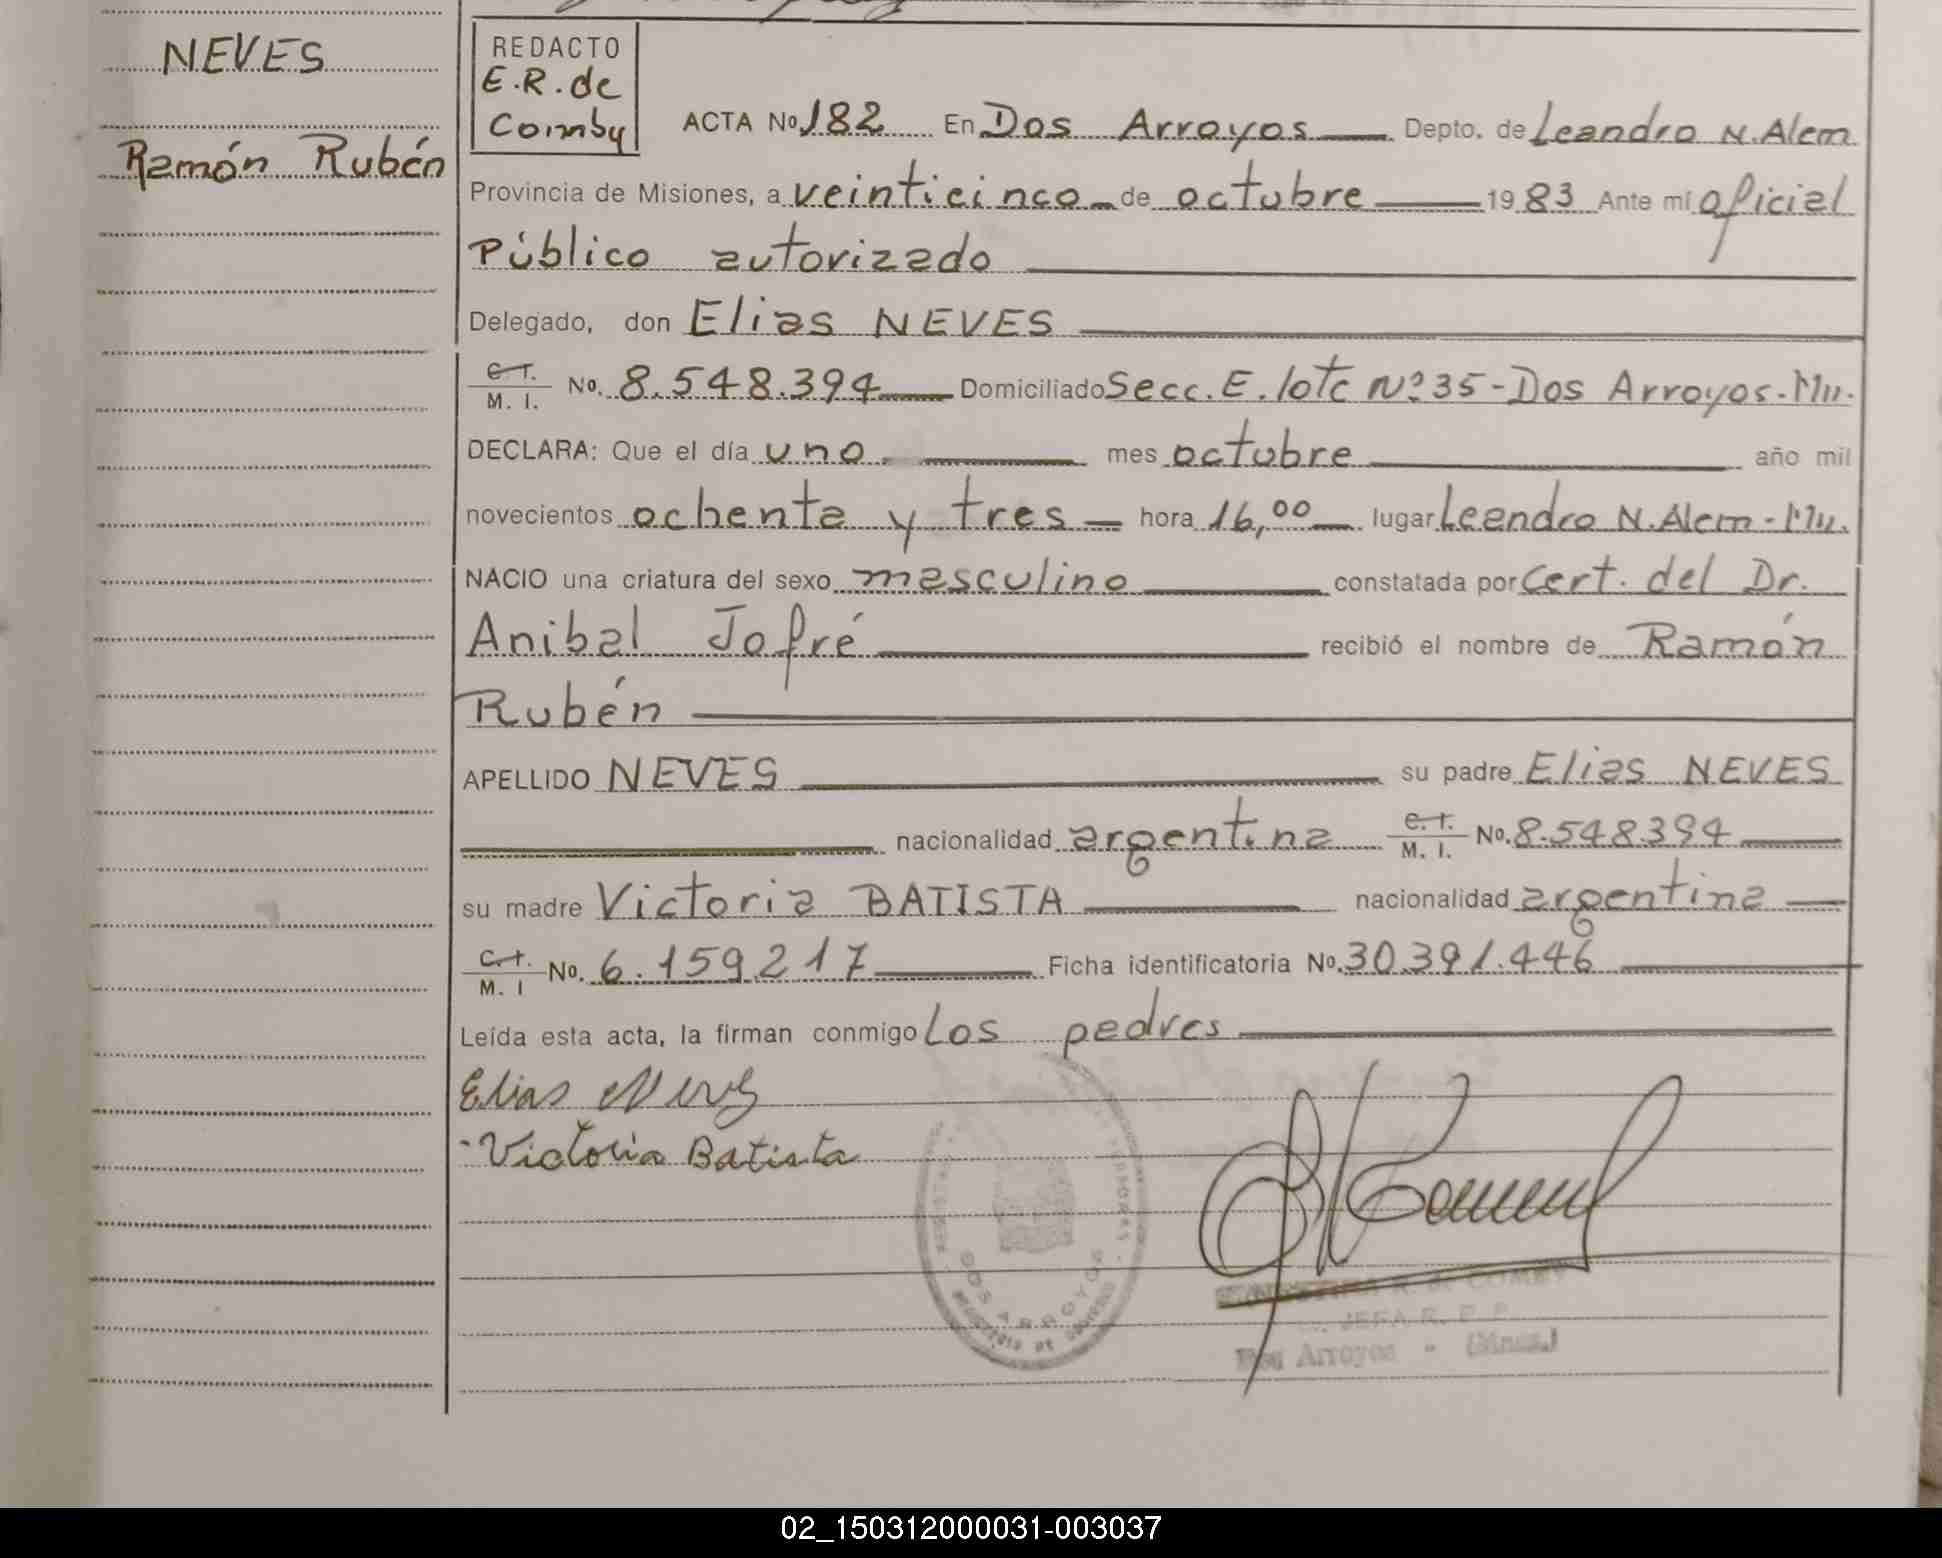 NEVES
Ramón Rubén
REDACTO
E.R. de
Coimby
ACTA No 182 En Dos Arroyos Depto. de Leandro N. Alem
Provincia de Misiones, a veinticinco de octubre 1983 Ante mí oficial
Público autorizado
Delegado, don Elias NEVES
C.I. M. I. No. 8.548.394 Domiciliado Secc. E. lote Nº 35 - Dos Arroyos.
DECLARA: Que el día uno mes octubre año mil
novecientos ochenta y tres hora 16,00 lugar Leandro N. Alem -
NACIO una criatura del sexo masculino constatada por Cert. del Dr.
Anibal Jofré recibió el nombre de Ramón
Rubén
APELLIDO NEVES su padre Elias NEVES
nacionalidad argentina C.I. M. I. No. 8.548394
su madre Victoria BATISTA nacionalidad argentina
C.I. M. I No. 6.159217 Ficha identificatoria No. 30.391.446
Leída esta acta, la firman conmigo Los padres
Elias Neves
Victoria Batista
DOS ARROYOS
JEFA R. P. P.
Dos Arroyos - (Mnes.)
02_150312000031-003037